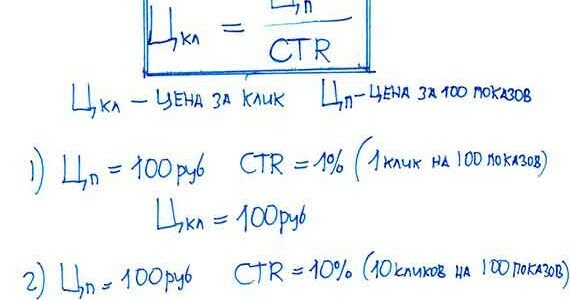 Цкл = Цп / CTR
Цкл – ЦЕНА ЗА КЛИК Цп – ЦЕНА ЗА 100 ПОКАЗОВ
1) Цп = 100 руб CTR = 1% (1 КЛИК НА 100 ПОКАЗОВ)
Цкл = 100 руб
2) Цп = 100 руб CTR = 10% (10 КЛИКОВ НА 100 ПОКАЗОВ)